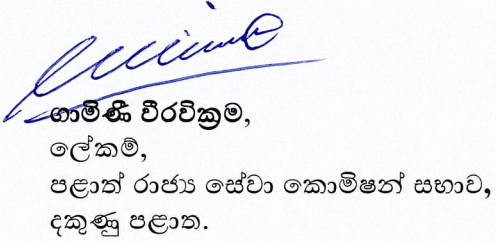 ගාමිණී වීරවික්‍රම,
ලේකම්,
පළාත් රාජ්‍ය සේවා කොමිෂන් සභාව,
දකුණු පළාත.